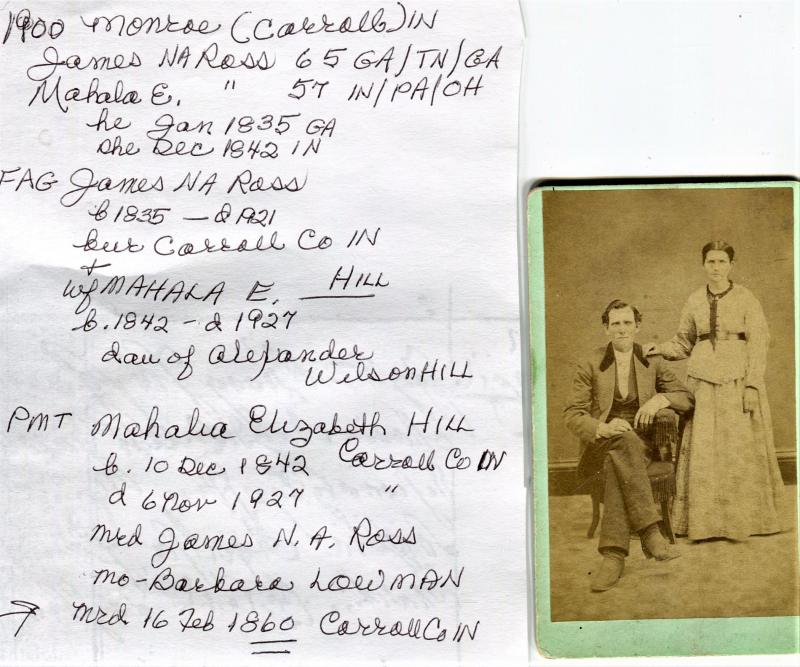 1900 Monroe (Carroll) IN
James NA Ross 65 GA/TN/GA
Mahala E. " 57 IN/PA/OH
he Jan 1835 GA
she Dec 1842 IN
FAG James NA Ross
b 1835 - d 1921
bur Carroll Co IN
+
wf MAHALA E. HILL
b. 1842 - d 1927
dau of Alexander
Wilson HILL
PMT Mahalia Elizabeth HILL
b. 10 Dec 1842 Carroll Co IN
d 6 Nov 1927 "
mrd James N. A. Ross
mo - Barbara LOWMAN
→ Mrd 16 Feb 1860 Carroll Co IN